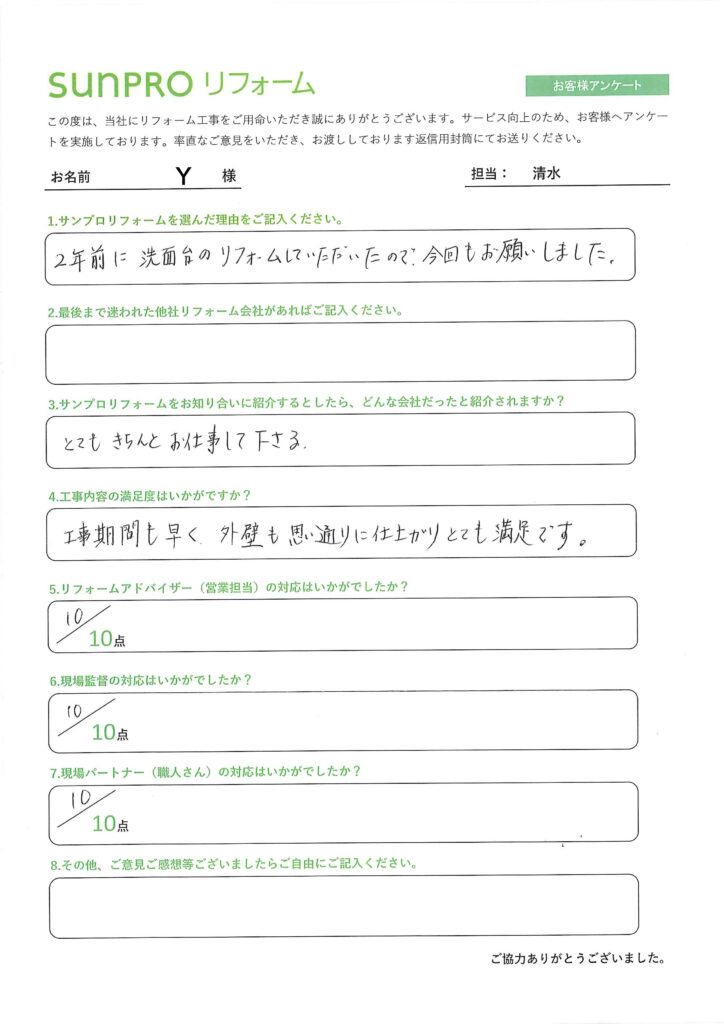 SUNPRO リフォーム
お客様アンケート
この度は、当社にリフォーム工事をご用命いただき誠にありがとうございます。サービス向上のため、お客様へアンケー
トを実施しております。率直なご意見をいただき、お渡ししております返信用封筒にてお送りください。
お名前 Y 様
担当： 清水
1.サンプロリフォームを選んだ理由をご記入ください。
2年前に 洗面台のリフォームしていただいたので、今回もお願いしました。
2.最後まで迷われた他社リフォーム会社があればご記入ください。
3.サンプロリフォームをお知り合いに紹介するとしたら、どんな会社だったと紹介されますか？
とても きちんと お仕事して下さる.
4.工事内容の満足度はいかがですか？
工事期間も早く、外壁も思い通りに仕上がりとても満足です。
5.リフォームアドバイザー（営業担当）の対応はいかがでしたか？
10/10点
6.現場監督の対応はいかがでしたか？
10/10点
7.現場パートナー（職人さん）の対応はいかがでしたか？
10/10点
8.その他、ご意見ご感想等ございましたらご自由にご記入ください。
ご協力ありがとうございました。